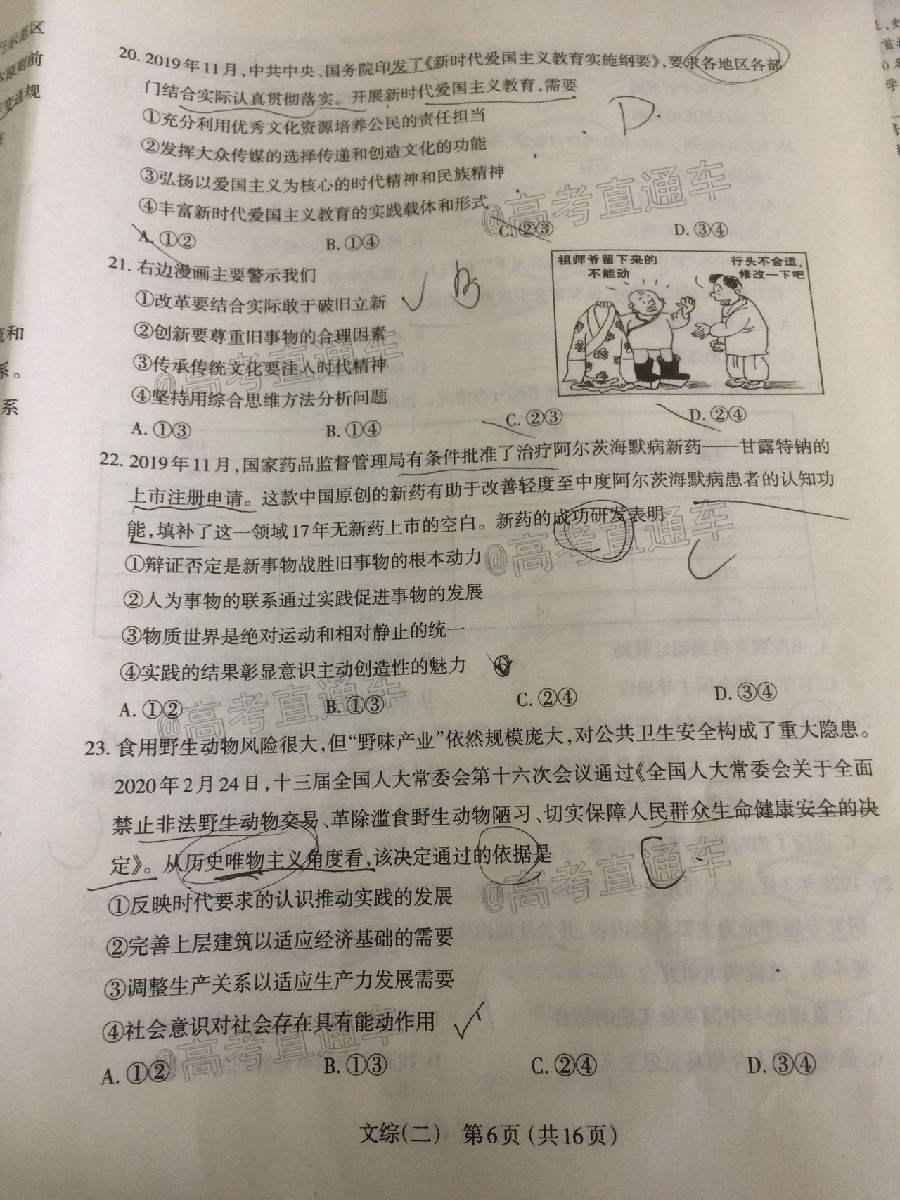 行示范区
本原则前
变通规
20. 2019年11月,中共中央、国务院印发了《新时代爱国主义教育实施纲要》,要求各地区各部
门结合实际认真贯彻落实。开展新时代爱国主义教育,需要
D.
①充分利用优秀文化资源培养公民的责任担当
②发挥大众传媒的选择传递和创造文化的功能
③弘扬以爱国主义为核心的时代精神和民族精神
④丰富新时代爱国主义教育的实践载体和形式
@高考直通车
A. ①② B. ①④ C. ②③ D. ③④
21. 右边漫画主要警示我们
B
祖师爷留下来的
不能动
行头不合适,
修改一下吧
①改革要结合实际敢于破旧立新
②创新要尊重旧事物的合理因素
③传承传统文化要注入时代精神
@高考直通车
④坚持用综合思维方法分析问题
A. ①③ B. ①④ C. ②③ D. ②④
22. 2019年11月,国家药品监督管理局有条件批准了治疗阿尔茨海默病新药——甘露特钠的
上市注册申请。这款中国原创的新药有助于改善轻度至中度阿尔茨海默病患者的认知功
能,填补了这一领域17年无新药上市的空白。新药的成功研发表明
@高考直通车
C
①辩证否定是新事物战胜旧事物的根本动力
②人为事物的联系通过实践促进事物的发展
③物质世界是绝对运动和相对静止的统一
④实践的结果彰显意识主动创造性的魅力
@高考直通车
A. ①② B. ①③ C. ②④ D. ③④
23. 食用野生动物风险很大,但“野味产业”依然规模庞大,对公共卫生安全构成了重大隐患。
2020年2月24日,十三届全国人大常委会第十六次会议通过《全国人大常委会关于全面
禁止非法野生动物交易、革除滥食野生动物陋习、切实保障人民群众生命健康安全的决
定》。从历史唯物主义角度看,该决定通过的依据是
C.
@高考直通车
①反映时代要求的认识推动实践的发展
②完善上层建筑以适应经济基础的需要
③调整生产关系以适应生产力发展需要
④社会意识对社会存在具有能动作用
@高考直通车
A. ①② B. ①③ C. ②④ D. ③④
文综(二) 第6页(共16页)